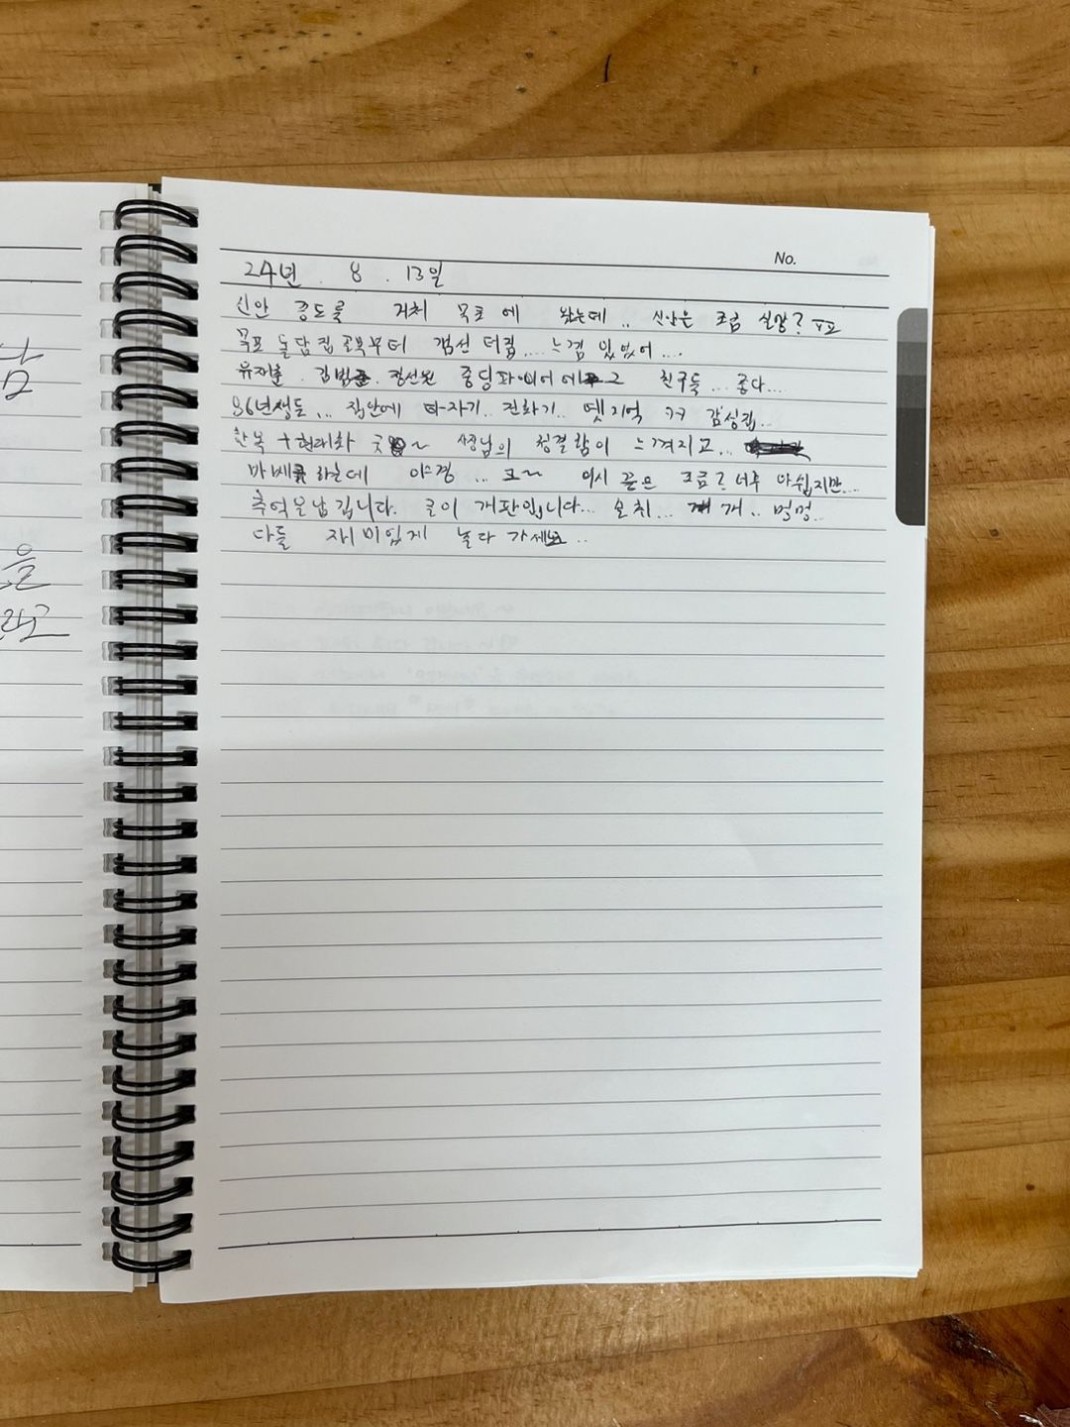 No.
24년 . 8 . 13일
신안 증도를 거쳐 목포에 왔는데.. 신안은 조금 실망? ㅠㅠ
목포 돌담집 골목부터 갬선 터짐.... 느낌 있었어....
유재훈. 김범준. 정선원 중딩 친구들... 좋다...
86년생들... 집안에 타자기.. 전화기.. 옛기억 ㅋㅋ 감성집..
한복 + 현대화 굿~ 사장님의 청결함이 느껴지고...
바베큐 하는데 야경... 크~ 역시 끝은 조금? 너무 아쉽지만...
추억을 남깁니다. 글이 개판입니다... 술취... 개.. 멍멍..
다들 재미있게 놀다 가세요..
남
을
라고